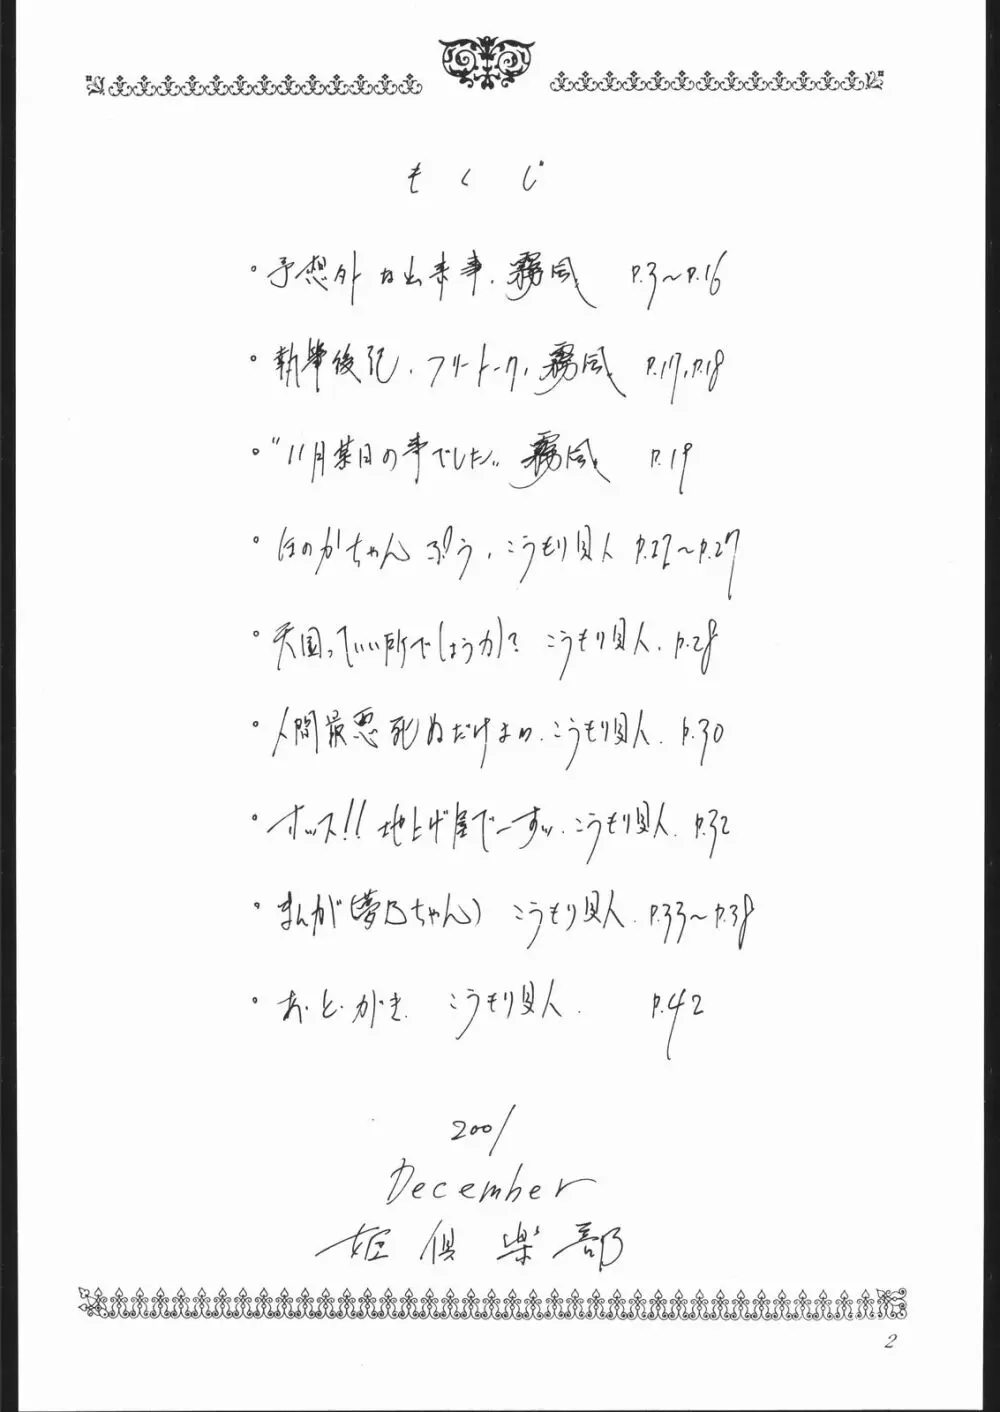 もくじ
・予想外な出来事. 霧風 P.3～P.16
・執筆後記. フリートーク. 霧風 P.17, P.18
・"11月某日の事でした" 霧風 P.19
・ほのかちゃん ぷう. こうもり貝人 P.22～P.27
・天国っていい所でしょうか? こうもり貝人. P.28
・人間最悪死ぬだけまわ. こうもり貝人. P.30
・オッス!! 地上げ屋でーすッ. こうもり貝人. P.32
・まんが(夢乃ちゃん) こうもり貝人. P.33～P.38
・あ・と・がき. こうもり貝人. P.42
2001
December
姫倶楽部
2